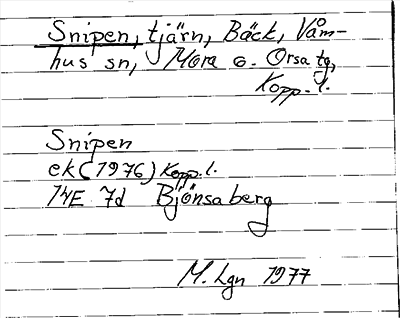 Snipen, tjärn, Bäck, Våm-
hus sn, Mora o. Orsa tg,
Kopp. l.
Snipen
ek (1976) Kopp. l.
14E 7d Björnsaberg
M. Lgn 1977